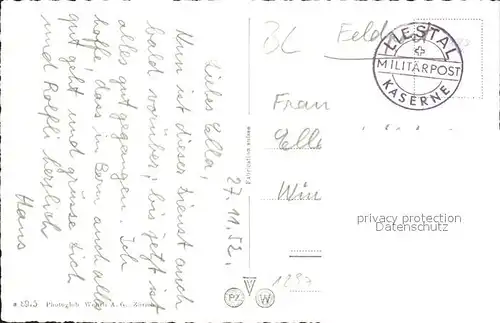 27. 11. 52.
Liebes Ella,
Nun ist dieser Dienst auch
bald vorüber, bis jetzt ist
alles gut gegangen. Ich
hoffe, dass in Bern auch alles
gut geht und grüsse Dich
und Rolfli herzlich
Hans
BL
LIESTAL
MILITÄRPOST
KASERNE
Frau
Ell
Win
privacy protection
watermark
Fabrication suisse
Photoglob A. G.
PZ
W